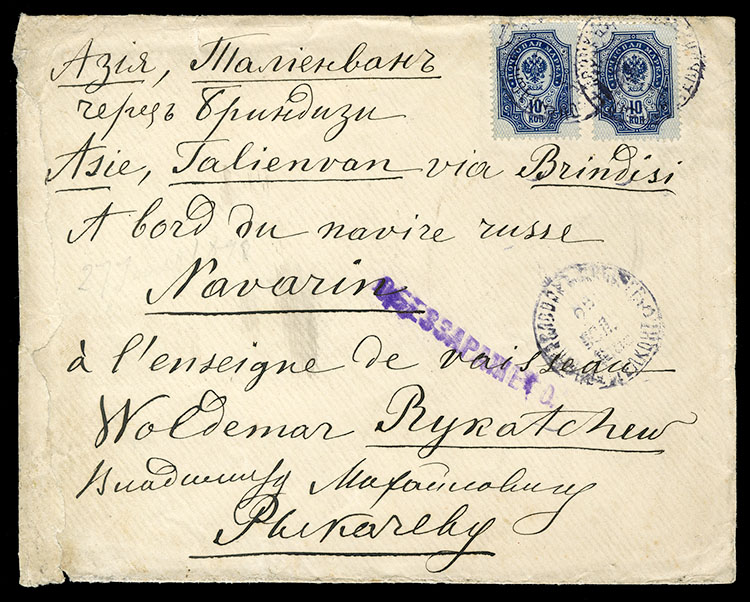 ПОЧТОВАЯ МАРКА ПОЧТОВАЯ МАРКА
10 10
КОП КОП
Азія, Таліенванъ
черезъ Бриндизи
Asie, Talienvan via Brindisi
A bord du navire russe
Navarin
à l'enseigne de vaisseau
Woldemar Rykatchew
Владиміру Михайловичу
Рыкачеву